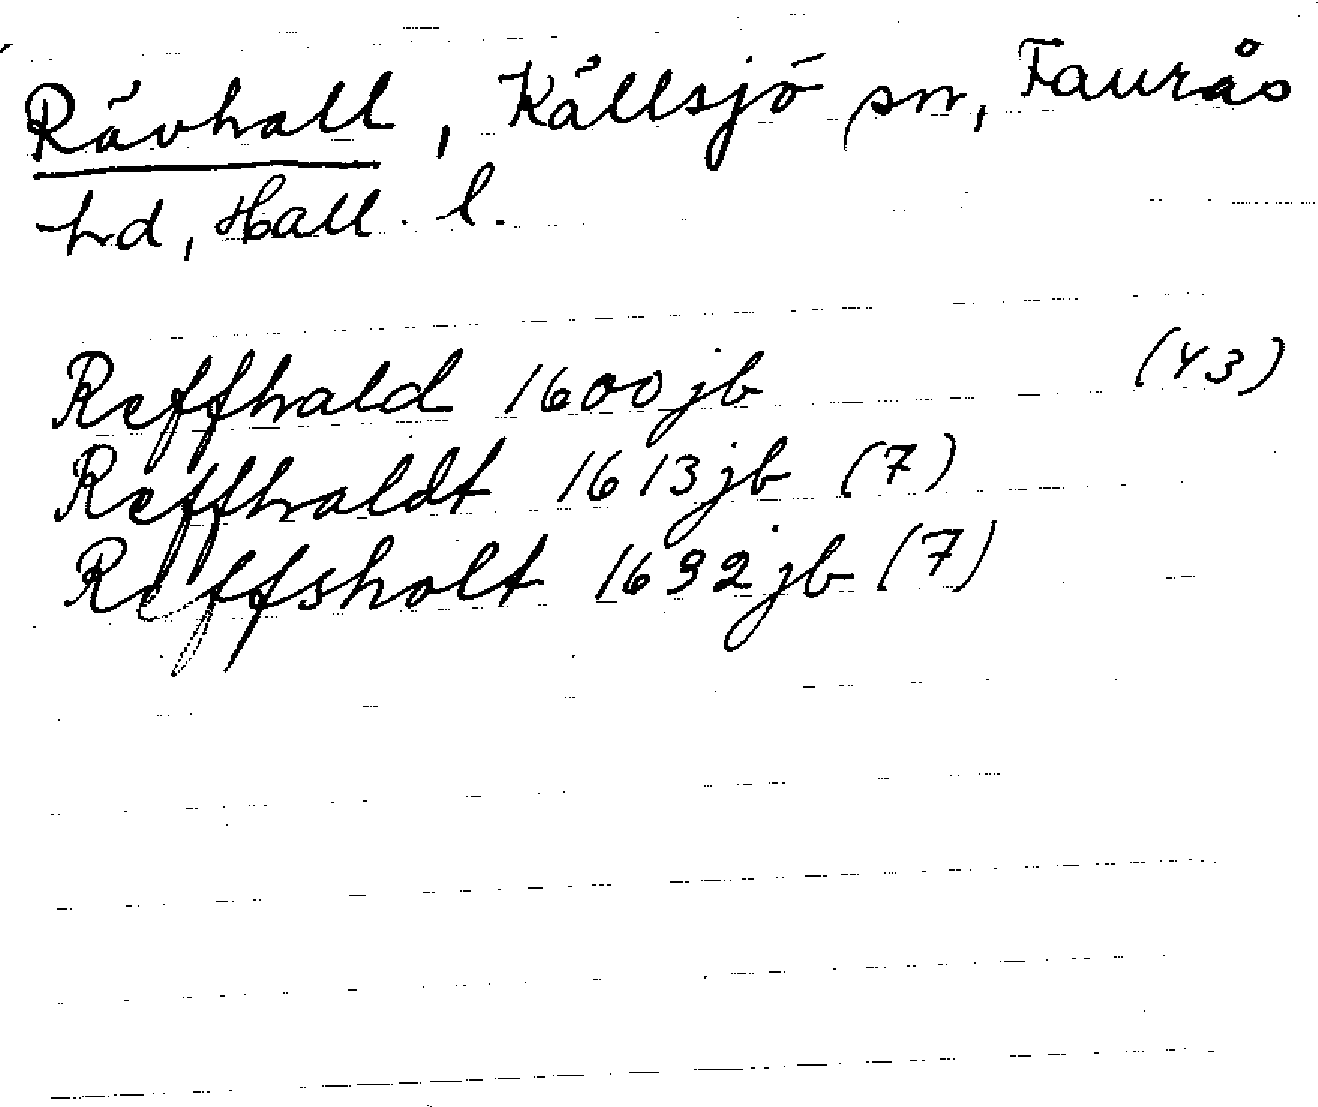 Rävhall, Källsjö sn, Faurås
hd, Hall. l.
Reffhald 1600 jb (43)
Reffhaldt 1613 jb (7)
Reffsholt 1692 jb (7)